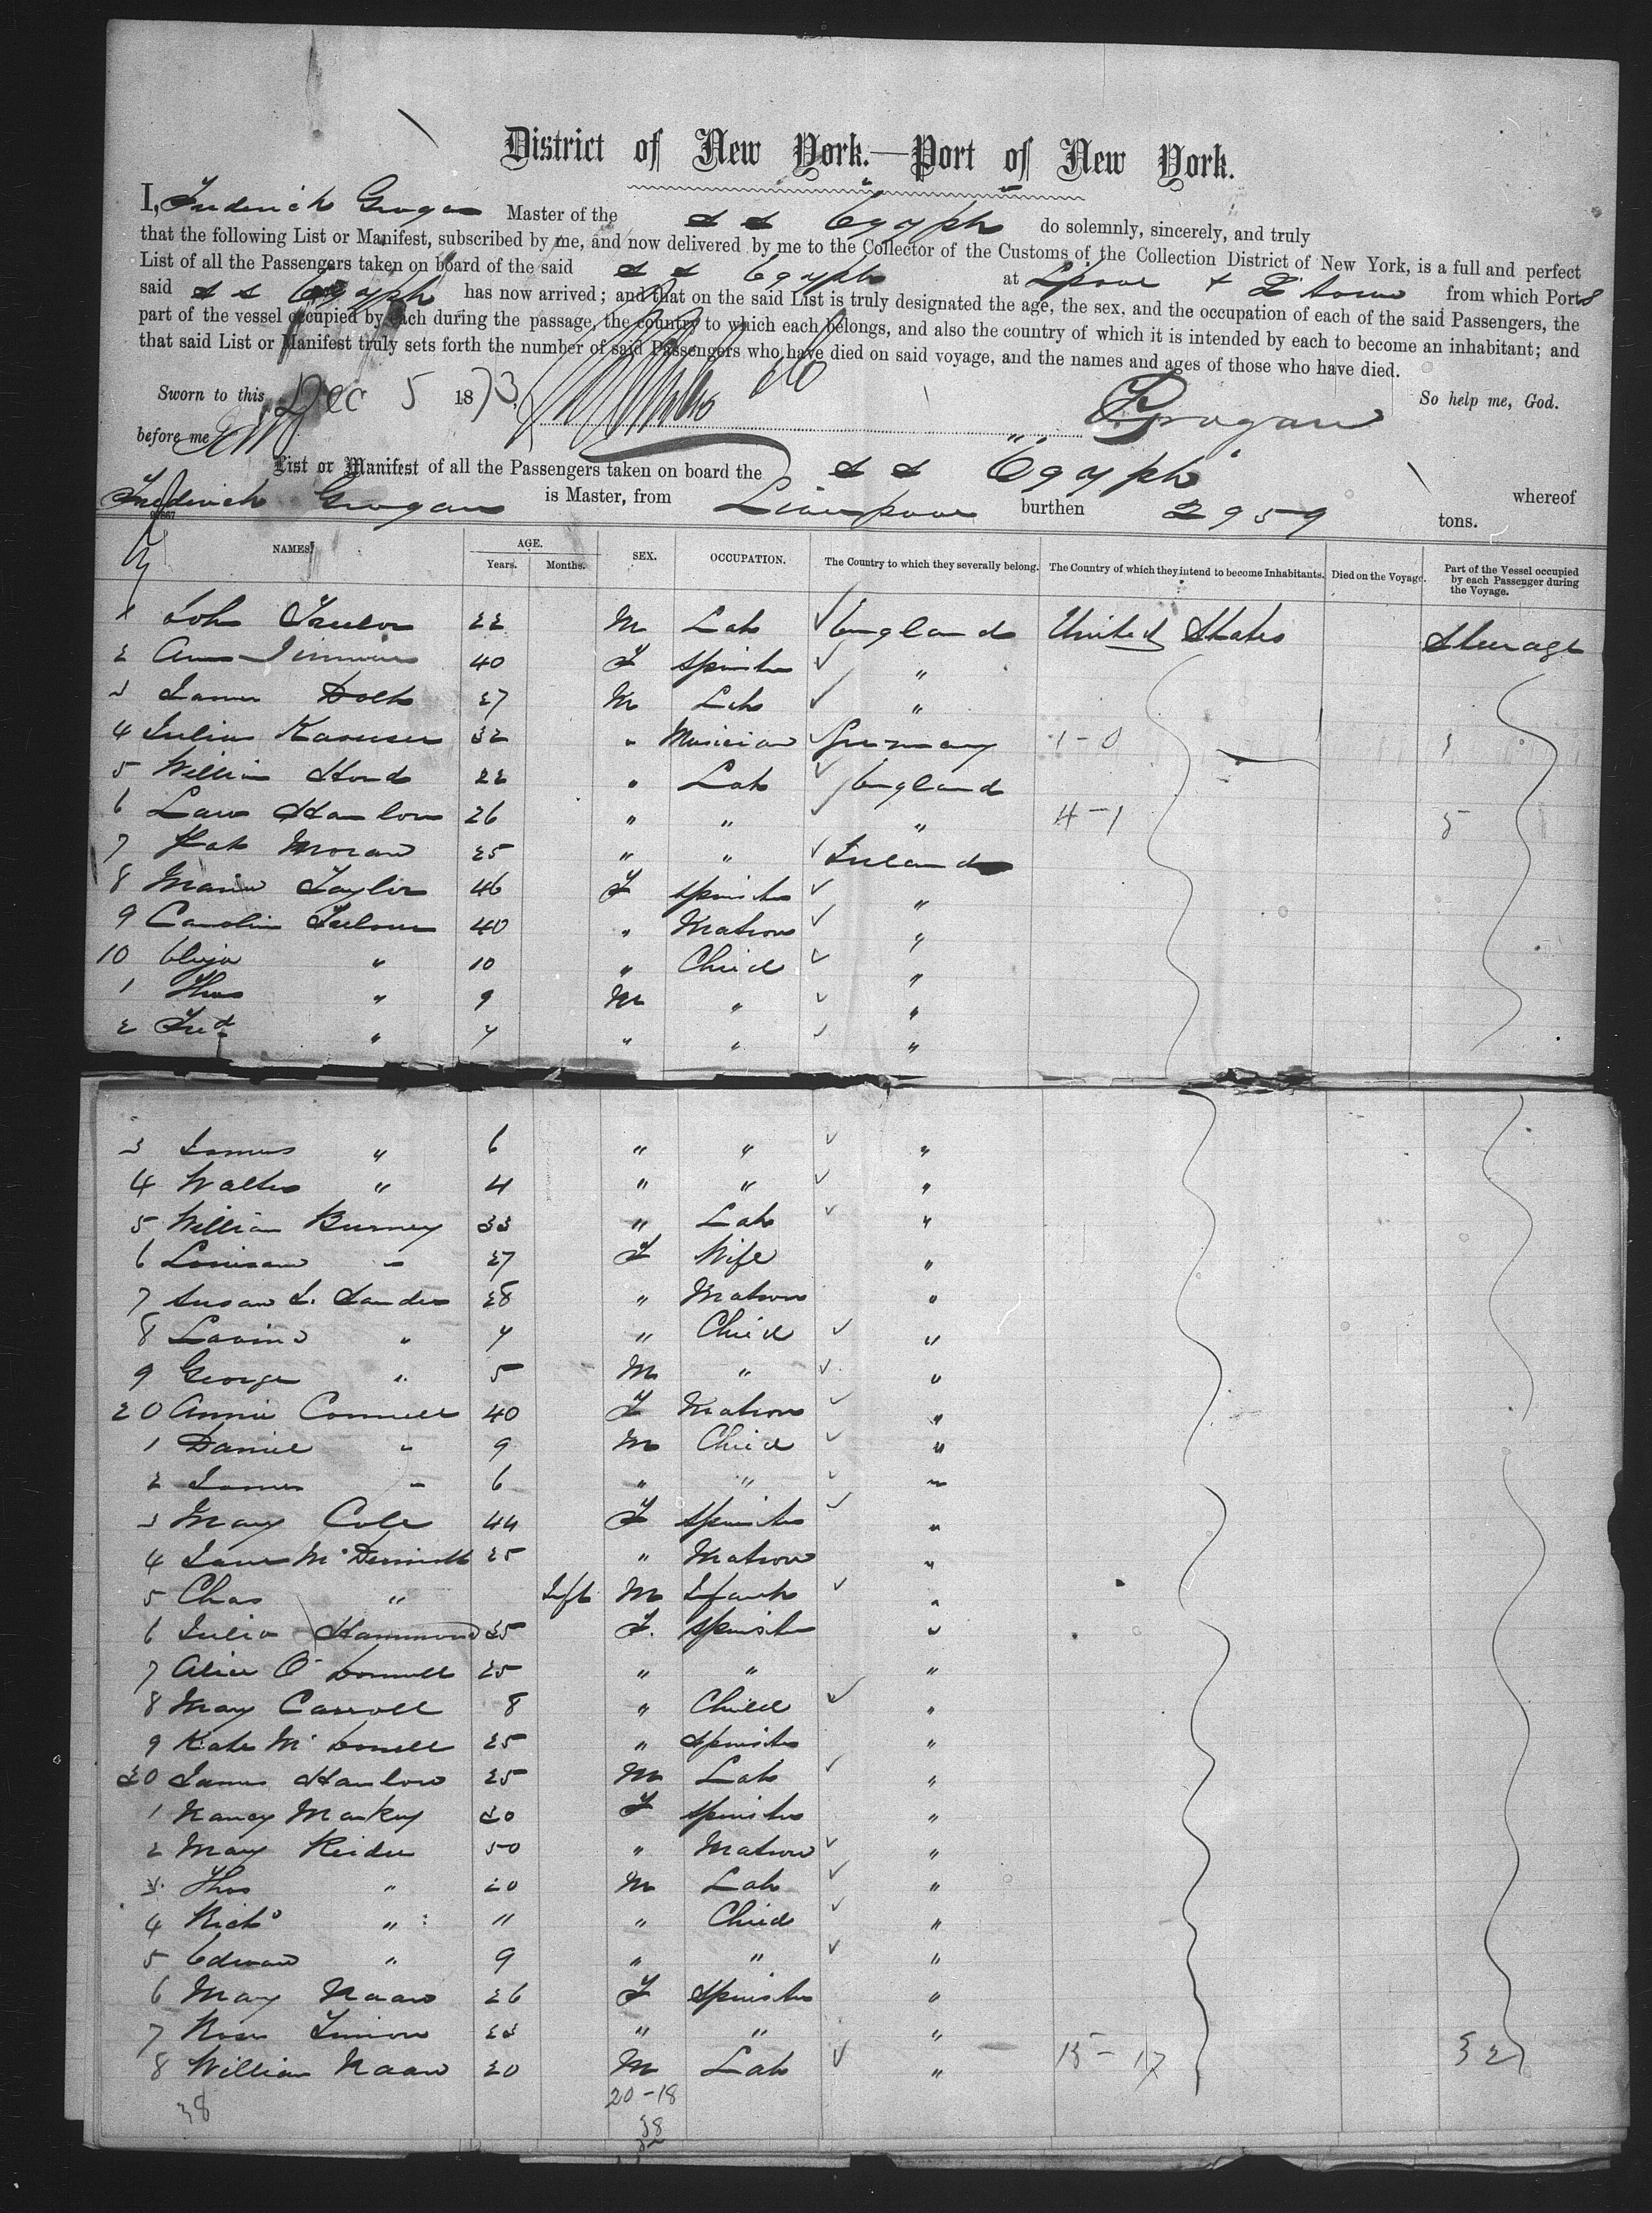 District of New York.—Port of New York.
I, Frederick Grogan Master of the S S Egypt do solemnly, sincerely, and truly
that the following List or Manifest, subscribed by me, and now delivered by me to the Collector of the Customs of the Collection District of New York, is a full and perfect
List of all the Passengers taken on board of the said S S Egypt at Lpool + Q town from which Port
said S S Egypt has now arrived; and that on the said List is truly designated the age, the sex, and the occupation of each of the said Passengers, the
part of the vessel occupied by each during the passage, the country to which each belongs, and also the country of which it is intended by each to become an inhabitant; and
that said List or Manifest truly sets forth the number of said Passengers who have died on said voyage, and the names and ages of those who have died.
Sworn to this Dec 5 1873, So help me, God.
before me Grogan
List or Manifest of all the Passengers taken on board the S S Egypt whereof
Frederick Grogan is Master, from Liverpool burthen 2959 tons.
NAMES. AGE. Years. Months. SEX. OCCUPATION. The Country to which they severally belong. The Country of which they intend to become Inhabitants. Died on the Voyage. Part of the Vessel occupied by each Passenger during the Voyage.
1 Joh 22 M Lab England United States Steerage
2 40 F Spinster "
3 James 27 M Lab "
4 32 " Musician Germany 1-0 1
5 William 22 " Lab England
6 Hanlon 26 " " " 4-1 5
7 Pat Moran 25 " " Ireland
8 Taylor 46 F Spinster "
9 Caroline 40 " Matron "
10 Eliza " 10 " Child "
1 Thos " 9 M " "
2 Fred " 7 " " "
3 James " 6 " " "
4 Walter " 4 " " "
5 William Burney 33 " Lab "
6 Louisa " 27 F Wife "
7 Susan 28 " Matron "
8 " 7 " Child "
9 George " 5 M " "
20 Annie Connell 40 F Matron "
1 Daniel " 9 M Child "
2 James " 6 " " "
3 Mary Cole 44 F Spinster "
4 Jane McDermott 25 " Matron "
5 Chas " Inft M Infant "
6 Julia Hammond 25 F. Spinster "
7 Alice O'Donnell 25 " " "
8 Mary Carroll 8 " Child "
9 Kate McDonell 25 " Spinster "
30 James Hanlon 25 M Lab "
1 Nancy Markey 30 F Spinster "
2 Mary 50 " Matron "
3 Thos " 20 M Lab "
4 Richd " 11 " Child "
5 Edward " 9 " " "
6 Mary Naan 26 F Spinster "
7 Rose 23 " " "
8 William Naan 20 M Lab " 15-17 32
38 20-18
38